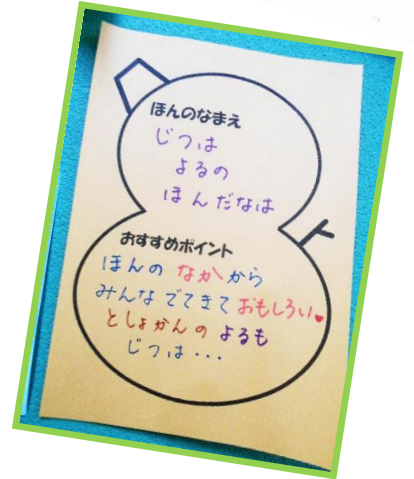 ほんのなまえ
じつは
よるの
ほんだなは
おすすめポイント
ほんの なかから
みんな でてきて おもしろい♥
としょかんの よるも
じつは・・・